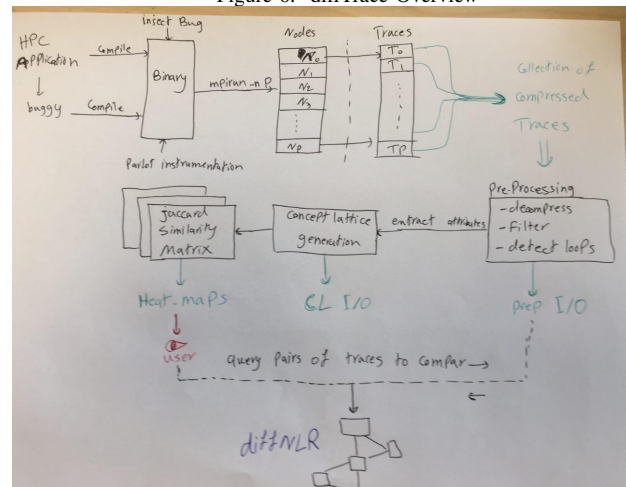 Figure 6: diffTrace Overview
Insect Bug
HPC
Application
Compile
buggy
Compile
Binary
mpirun -n P
ParLoT instrumentation
Nodes
N0
N1
N2
N3
NP
Traces
T0
T1
TP
Collection of
Compressed
Traces
Pre-Processing
- decompress
- Filter
- detect loops
extract attributes
Concept lattice
generation
Jaccard
Similarity
Matrix
Heat-maps
CL I/O
prep I/O
user
query pairs of traces to compar
diffNLR